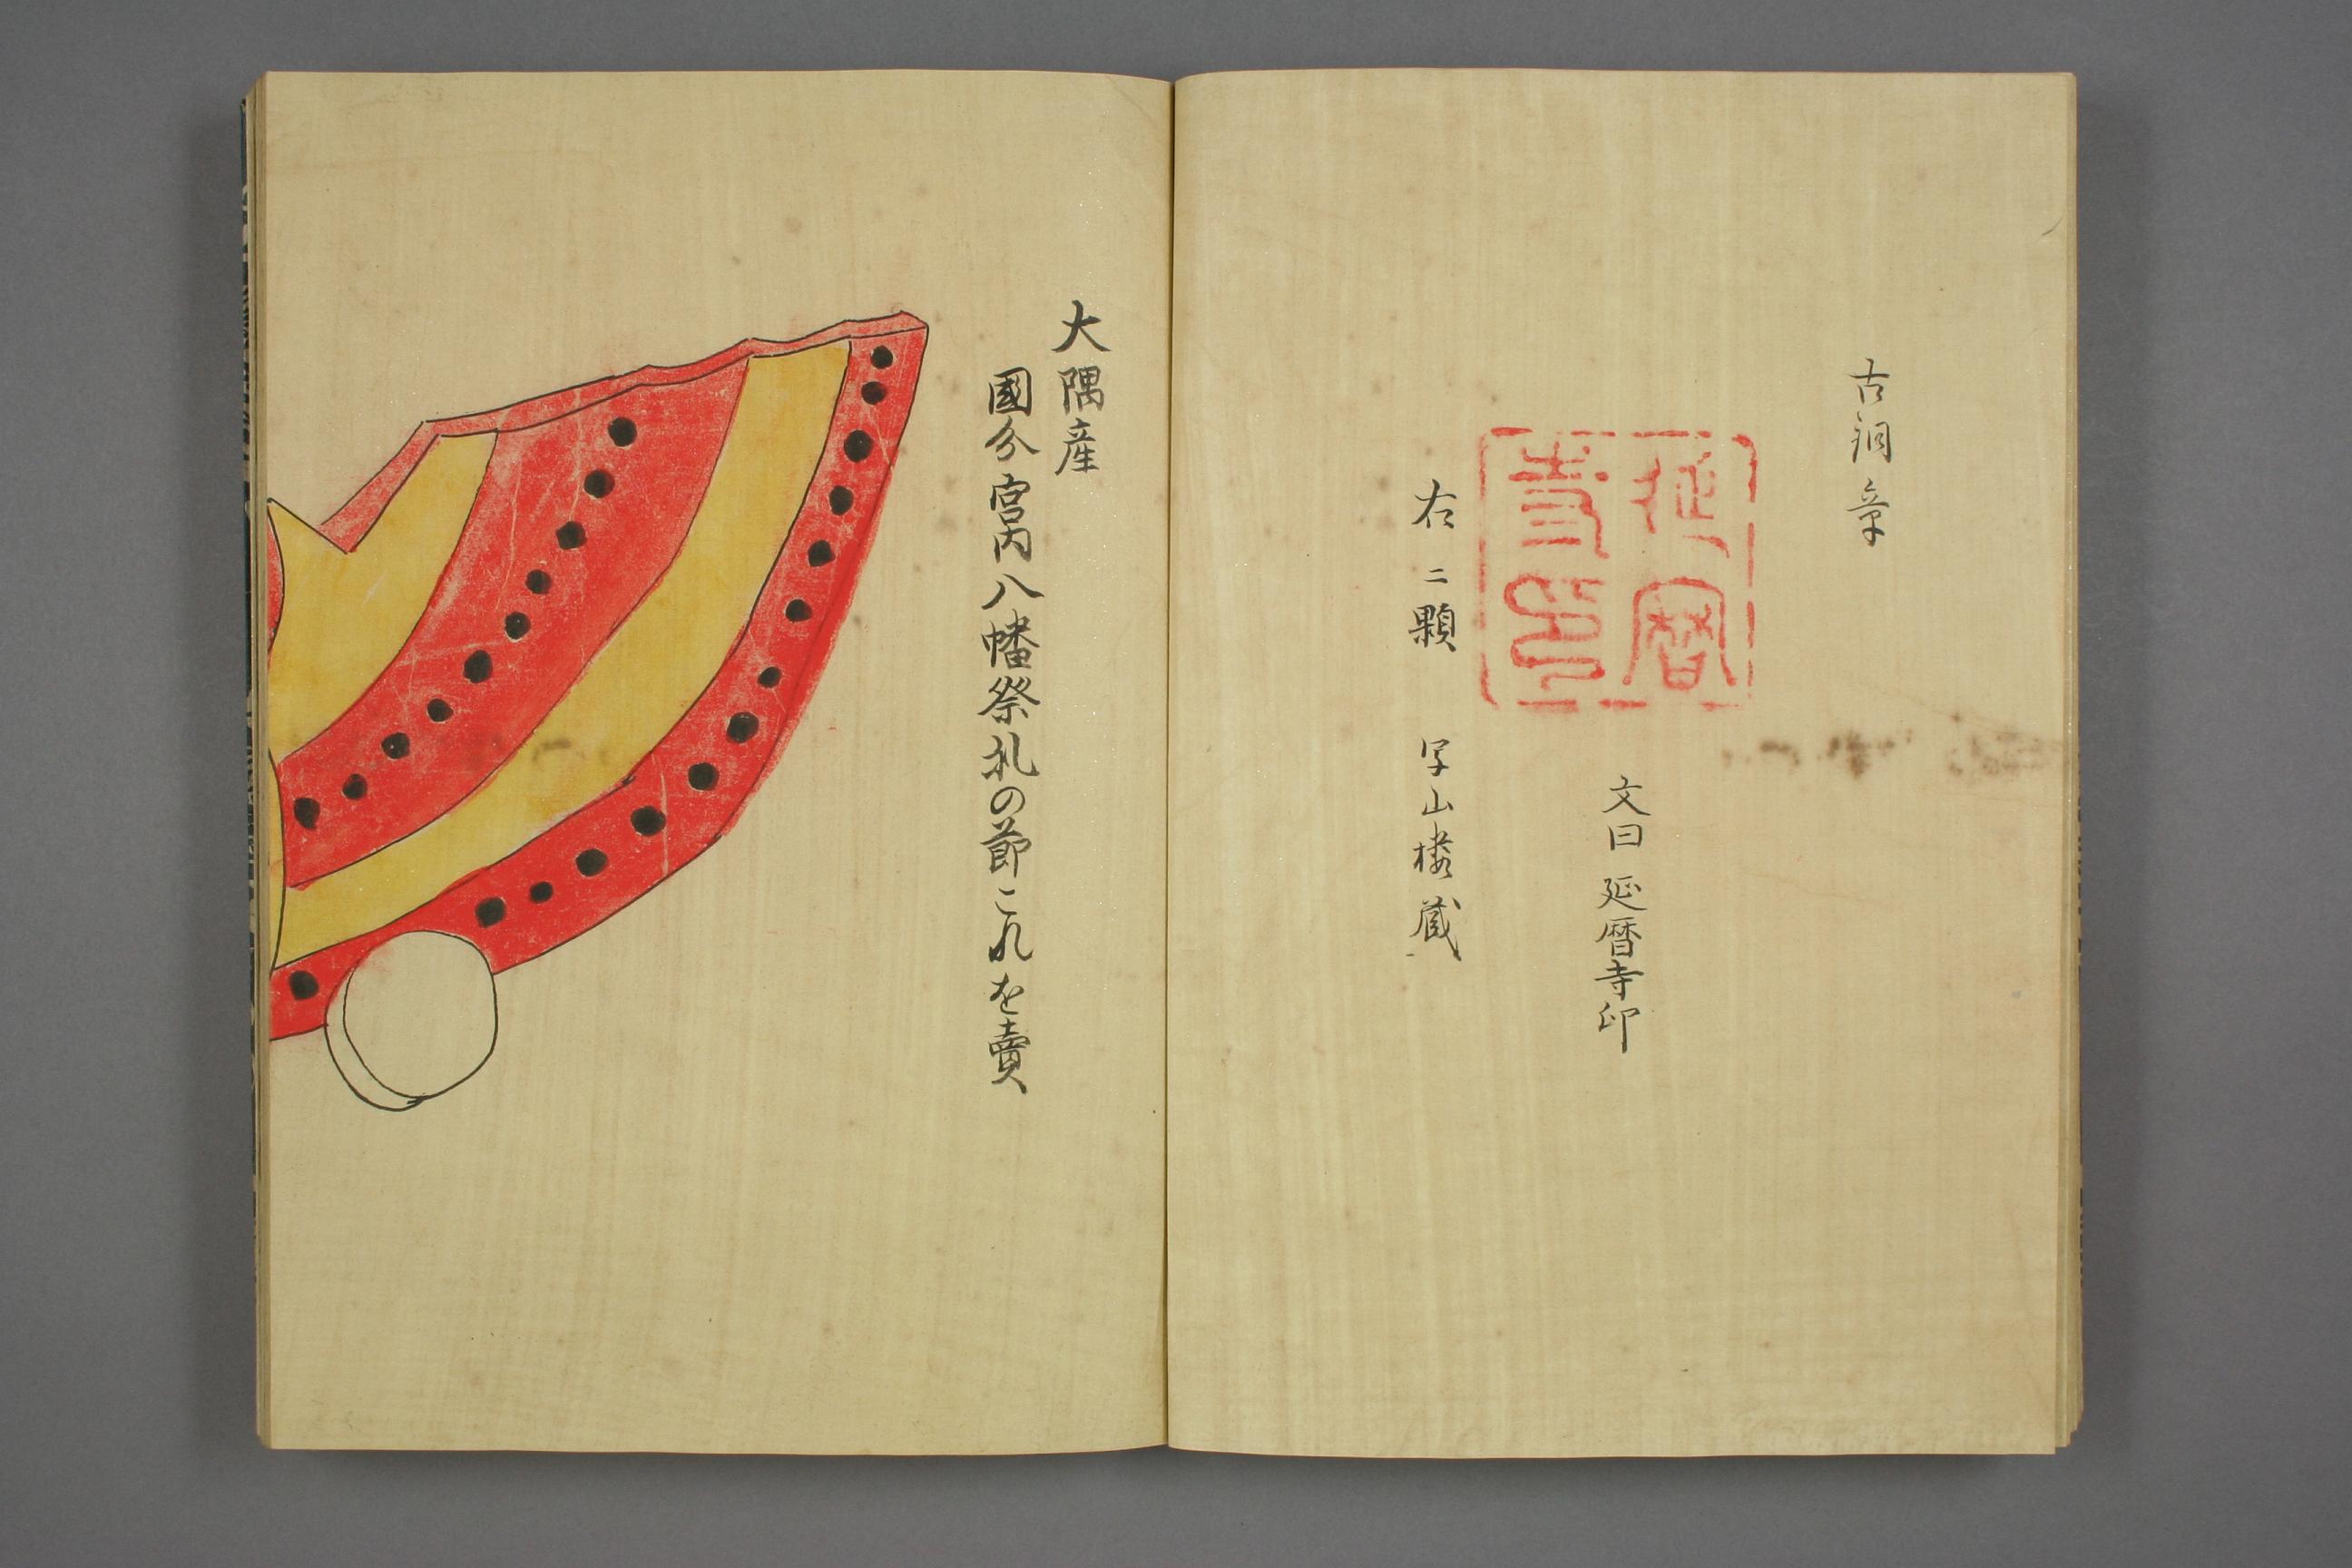 古銅章
延暦
寺印
文曰 延暦寺印
右二顆 写山楼蔵
大隅産
國分宮内八幡祭礼の節これを賣